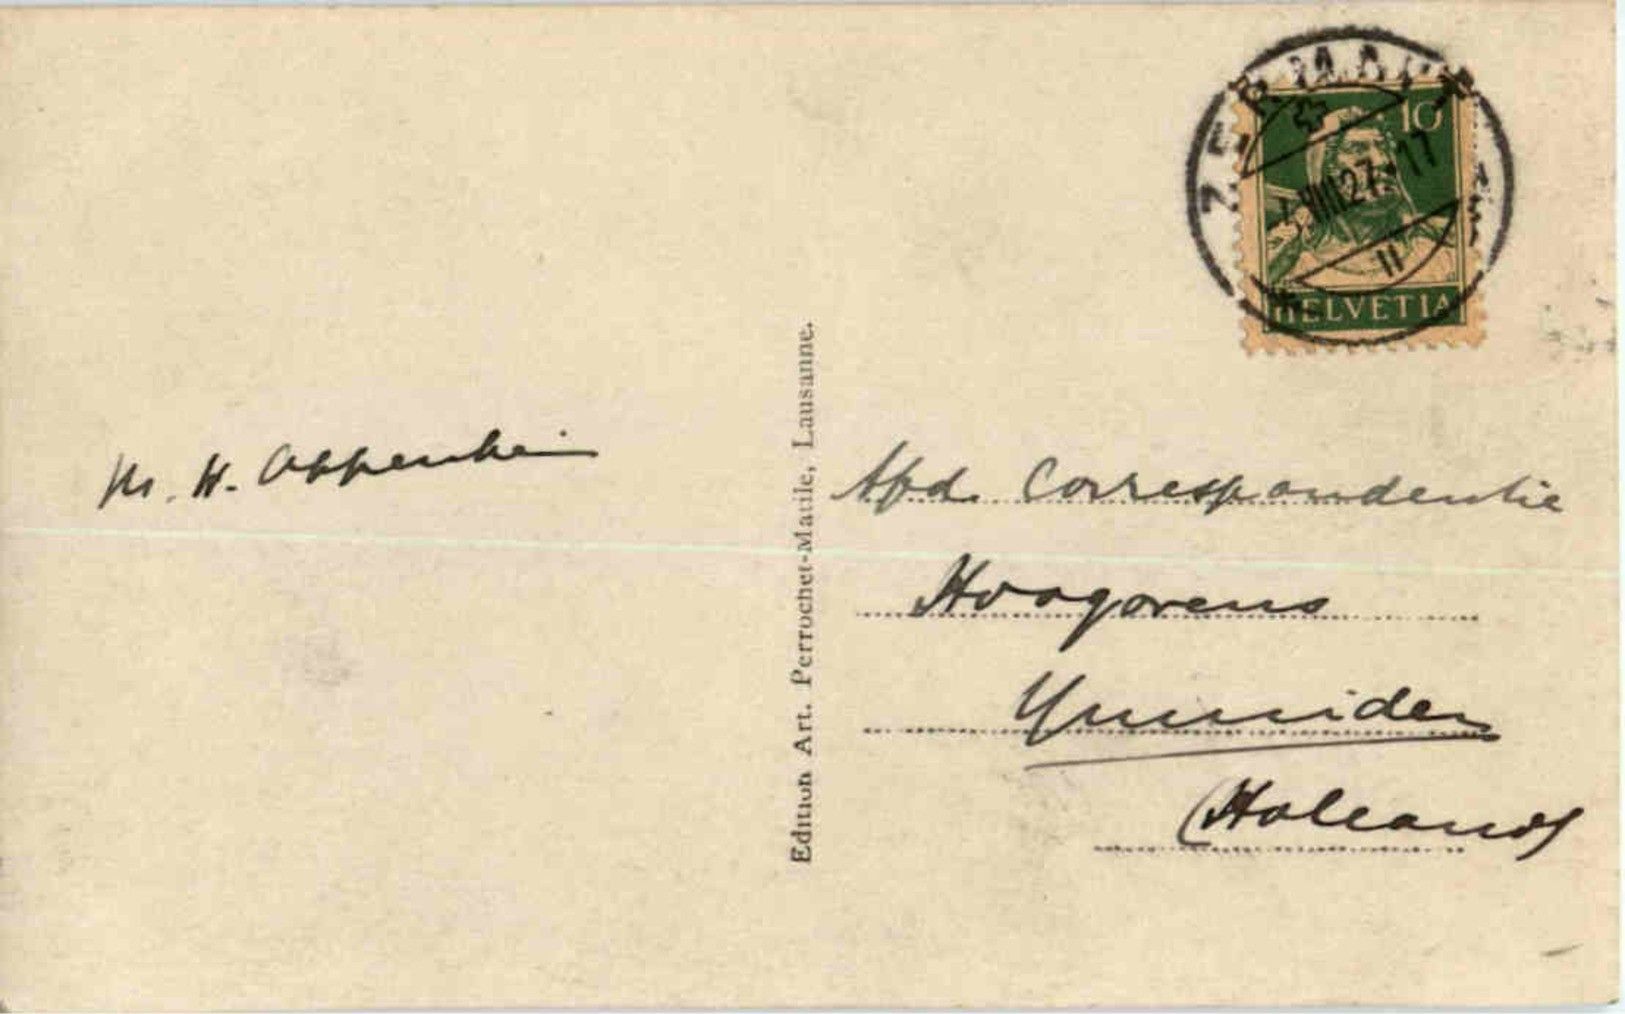 ZERMATT
10
4.VIII.27.-17
II
HELVETIA
Mr. H. Oppenheim
Edition Art. Perrochet-Matile, Lausanne.
Afd. Correspondentie
Hoogovens
Ymuiden
(Holland)